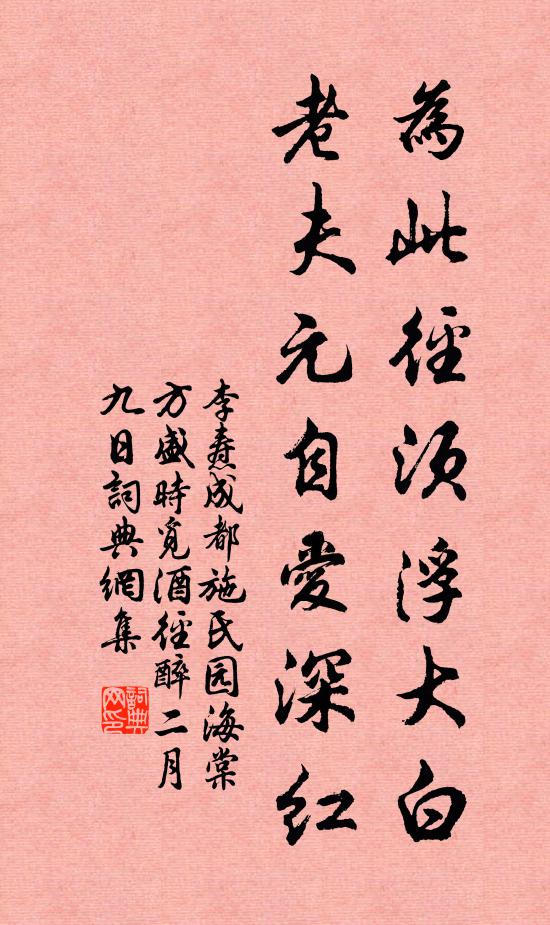 為此徑須浮大白
老夫元自愛深紅
李燾成都施氏园海棠
方盛時覓酒徑醉二月
九日詞典網集
詞典
网印